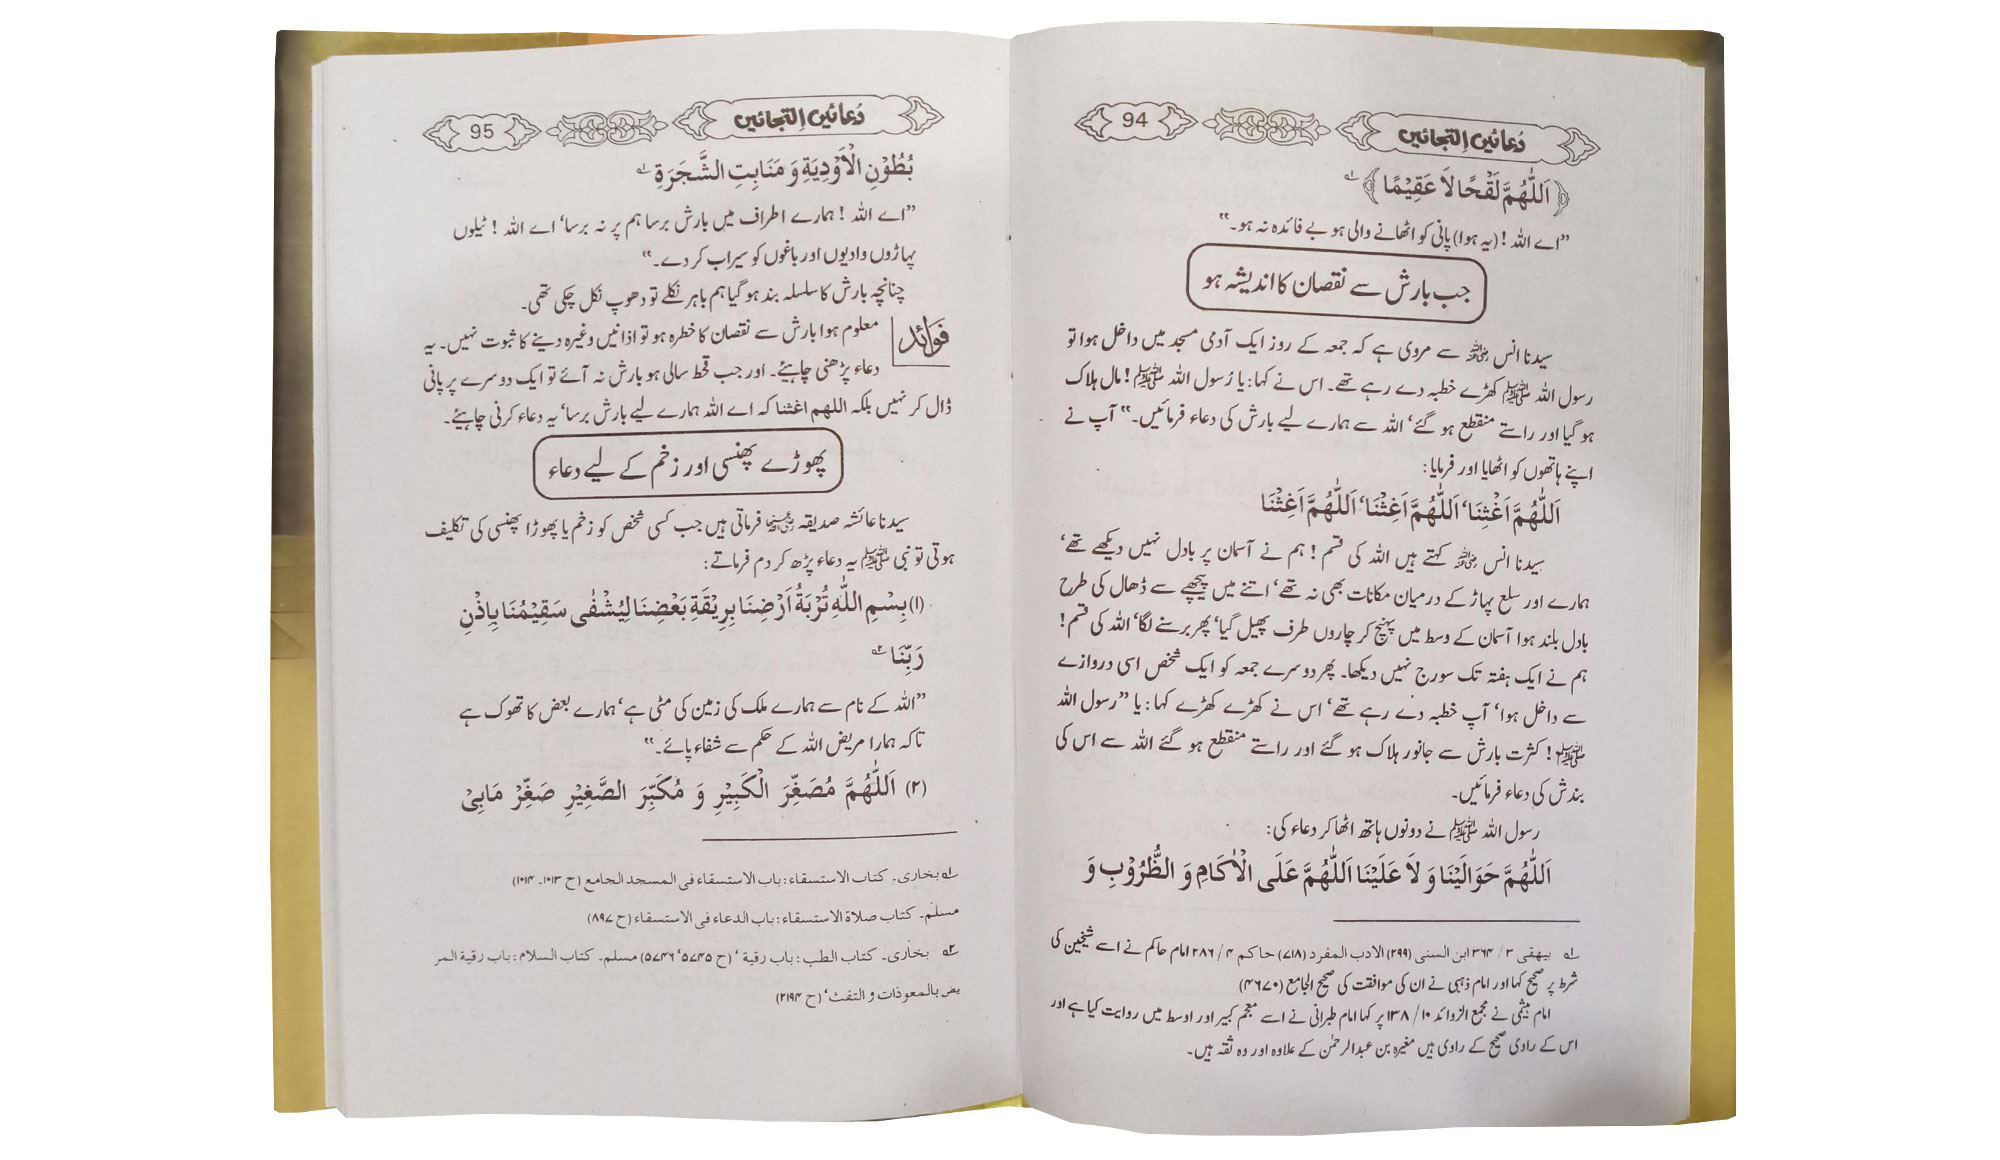 دُعائیں اِلتجائیں
94
﴿اَللّٰهُمَّ لَقْحًا لاَ عَقِيْمًا﴾ ۱؎
”اے اللہ! (یہ ہوا) پانی کو اٹھانے والی ہو بے فائدہ نہ ہو۔“
جب بارش سے نقصان کا اندیشہ ہو
سیدنا انس رضی اللہ عنہ سے مروی ہے کہ جمعہ کے روز ایک آدمی مسجد میں داخل ہوا تو
رسول اللہ ﷺ کھڑے خطبہ دے رہے تھے۔ اس نے کہا: یا رُسول اللہ ﷺ! مال ہلاک
ہو گیا اور راستے منقطع ہو گئے‘ اللہ سے ہمارے لیے بارش کی دعاء فرمائیں۔“ آپ نے
اپنے ہاتھوں کو اٹھایا اور فرمایا:
اَللّٰهُمَّ اَغْثِنَا‘ اَللّٰهُمَّ اَغِثْنَا‘ اَللّٰهُمَّ اَغِثْنَا
سیدنا انس رضی اللہ عنہ کہتے ہیں اللہ کی قسم! ہم نے آسمان پر بادل نہیں دیکھے تھے‘
ہمارے اور سلع پہاڑ کے درمیان مکانات بھی نہ تھے‘ اتنے میں پیچھے سے ڈھال کی طرح
بادل بلند ہوا آسمان کے وسط میں پہنچ کر چاروں طرف پھیل گیا‘ پھر برسنے لگا‘ اللہ کی قسم!
ہم نے ایک ہفتہ تک سورج نہیں دیکھا۔ پھر دوسرے جمعہ کو ایک شخص اسی دروازے
سے داخل ہوا‘ آپ خطبہ دے رہے تھے‘ اس نے کھڑے کھڑے کہا: یا ”رسول اللہ
ﷺ! کثرت بارش سے جانور ہلاک ہو گئے اور راستے منقطع ہو گئے اللہ سے اس کی
بندش کی دعاء فرمائیں۔
رسول اللہ ﷺ نے دونوں ہاتھ اٹھا کر دعاء کی:
اَللّٰهُمَّ حَوَالَيْنَا وَ لاَ عَلَيْنَا اَللّٰهُمَّ عَلَى الْاٰكَامِ وَ الظُّرُوْبِ وَ
۱؎ بیهقی ۳/ ۳۶۴ ابن السنی (۲۹۹) الادب المفرد (۷۱۸) حاکم ۴/ ۲۸۶ امام حاکم نے اسے شیخین کی
شرط پر صحیح کہا اور امام ذہبی نے ان کی موافقت کی صحیح الجامع (۴۶۷۰)
امام ہیثمی نے مجمع الزوائد ۱۰/ ۱۳۸ پر کہا امام طبرانی نے اسے معجم کبیر اور اوسط میں روایت کیا ہے اور
اس کے راوی صحیح کے راوی ہیں مغیرہ بن عبدالرحمٰن کے علاوہ اور وہ ثقہ ہیں۔
دُعائیں اِلتجائیں
95
بُطُوْنِ الْاَوْدِيَةِ وَ مَنَابِتِ الشَّجَرَةِ ۱؎
”اے اللہ! ہمارے اطراف میں بارش برسا ہم پر نہ برسا‘ اے اللہ! ٹیلوں
پہاڑوں وادیوں اور باغوں کو سیراب کر دے۔“
چنانچہ بارش کا سلسلہ بند ہو گیا ہم باہر نکلے تو دھوپ نکل چکی تھی۔
فوائد
معلوم ہوا بارش سے نقصان کا خطرہ ہو تو اذانیں وغیرہ دینے کا ثبوت نہیں۔ یہ
دعاء پڑھنی چاہیئے۔ اور جب قحط سالی ہو بارش نہ آئے تو ایک دوسرے پر پانی
ڈال کر نہیں بلکہ اللھم اغثنا کہ اے اللہ ہمارے لیے بارش برسا‘ یہ دعاء کرنی چاہیئے۔
پھوڑے پھنسی اور زخم کے لیے دعاء
سیدنا عائشہ صدیقہ رضی اللہ عنہا فرماتی ہیں جب کسی شخص کو زخم یا پھوڑا پھنسی کی تکلیف
ہوتی تو نبی ﷺ یہ دعاء پڑھ کر دم فرماتے:
(۱) بِسْمِ اللّٰهِ تُرْبَةُ اَرْضِنَا بِرِيْقَةِ بَعْضِنَا لِيُشْفٰى سَقِيْمُنَا بِاِذْنِ
رَبِّنَا ۲؎
”اللہ کے نام سے ہمارے ملک کی زمین کی مٹی ہے‘ ہمارے بعض کا تھوک ہے
تاکہ ہمارا مریض اللہ کے حکم سے شفاء پائے۔“
(۲) اَللّٰهُمَّ مُصَغِّرَ الْكَبِيْرِ وَ مُكَبِّرَ الصَّغِيْرِ صَغِّرْ مَابِيْ
۱؎ بخاری۔ کتاب الاستسقاء: باب الاستسقاء فی المسجد الجامع (ح ۱۰۱۳۔ ۱۰۱۴)
مسلم۔ کتاب صلاة الاستسقاء: باب الدعاء فی الاستسقاء (ح ۸۹۷)
۲؎ بخاری۔ کتاب الطب: باب رقیة‘ (ح ۵۷۴۵‘ ۵۷۴۶) مسلم۔ کتاب السلام: باب رقیة المر
یض بالمعوذات و النفث‘ (ح ۲۱۹۴)